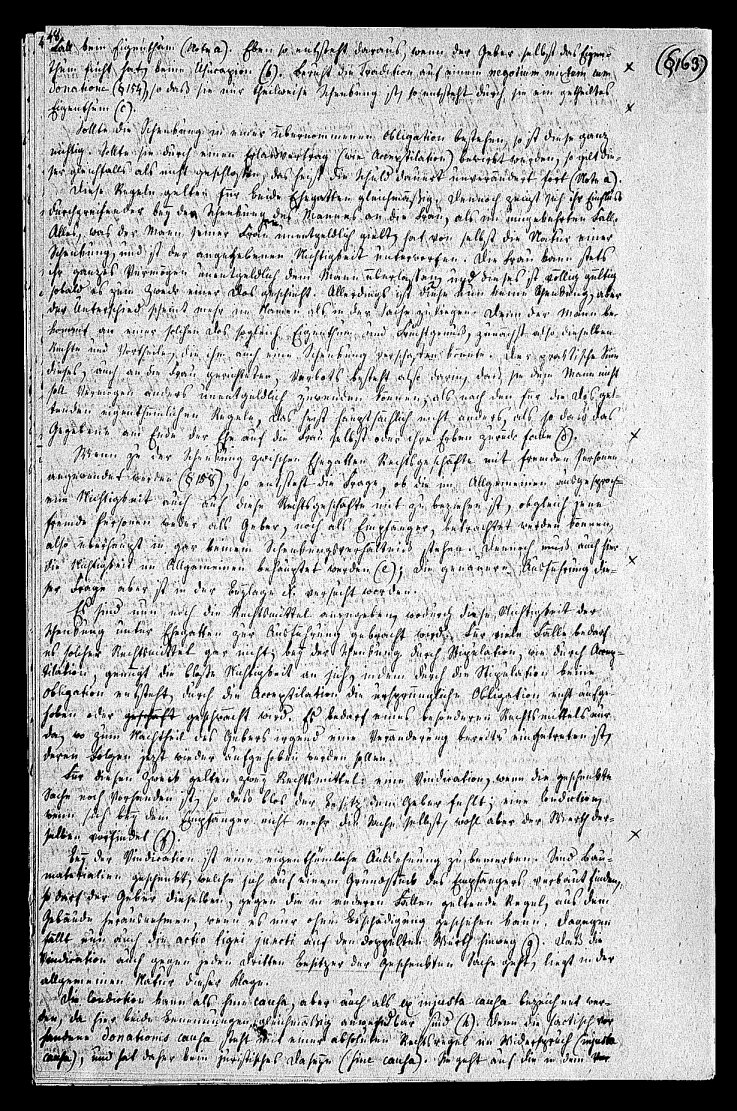 48.
(§163)
Fall kein Eigenthum (Note a). Eben so entsteht daraus, wenn der Geber selbst das Eigen-
thum nicht hat, keine Usucapion (b). Beruht die Tradition auf einem negotium mixtum cum
donatione (§ 154), so daß sie nur theilweise Schenkung ist, so entsteht durch sie ein getheiltes
Eigenthum (c).
Sollte die Schenkung in einer übernommenen Obligation bestehen, so ist diese ganz
nichtig. Sollte sie durch einen Erlaßvertrag (wie Acceptilation) bewirkt werden, so gilt die-
ser gleichfalls als nicht geschlossen, das heißt die Schuld dauert unverändert fort (Note a).
Diese Regeln gelten für beide Ehegatten gleichmäßig. Dennoch zeigt sich ihr Einfluß
durchgreifender bey der Schenkung des Mannes an die Frau, als im umgekehrten Fall.
Alles, was der Mann seiner Frau unentgeldlich giebt, hat von selbst die Natur einer
Schenkung, und ist der angegebenen Nichtigkeit unterworfen. Die Frau kann stets
ihr ganzes Vermögen unentgeldlich dem Mann überlassen, und dieses ist völlig gültig
sobald es zum Zweck einer Dos geschieht. Allerdings ist diese nun keine Schenkung, aber
der Unterschied scheint mehr im Namen als in der Sache zu liegen. Denn der Mann be-
kommt an einer solchen Dos sogleich Eigenthum und Fruchtgenuß, zunächst also dieselben
Rechte und Vortheile, die ihm auch eine Schenkung verschaffen könnte. Der praktische Sinn
dieses, auch an die Frau gerichteten, Verbots besteht also darin, daß sie dem Mann nicht
soll Vermögen anders unentgeldlich zuwenden können, als nach den für die Dos gel-
tenden eigenthümlichen Regeln, das heißt hauptsächlich nicht anders, als so daß das
Gegebene am Ende der Ehe auf die Frau selbst oder ihre Erben zurück falle (d).
Wenn zu der Schenkung zwischen Ehegatten Rechtsgeschäfte mit fremden Personen
angewendet werden (§ 158), so entsteht die Frage, ob die im Allgemeinen ausgesproch-
ene Nichtigkeit auch auf diese Rechtsgeschäfte mit zu beziehen ist, obgleich jene
fremde Personen weder als Geber, noch als Empfänger, betrachtet werden können,
also überhaupt in gar keinem Schenkungsverhältniß stehen. Dennoch muß auch hier
die Nichtigkeit im Allgemeinen behauptet werden (e); die genauere Ausführung die-
ser Frage aber ist in der Beylage X. versucht worden.
Es sind nun noch die Rechtsmittel anzugeben, wodurch diese Nichtigkeit der
Schenkung unter Ehegatten zur Ausführung gebracht wird. Für viele Fälle bedarf
es solcher Rechtsmittel gar nicht; bey der Schenkung durch Stipulation, wie durch Accep-
tilation, genügt die bloße Nichtigkeit an sich, indem durch die Stipulation keine
Obligation entsteht, durch die Acceptilation die ursprüngliche Obligation nicht aufge-
hoben oder geschwächt wird. Es bedarf eines besonderen Rechtsmittels nur
da, wo zum Nachtheil des Gebers irgend eine Veränderung bereits eingetreten ist,
deren Folgen jetzt wieder aufgehoben werden sollen.
Für diesen Zweck gelten zwey Rechtsmittel: eine Vindication, wenn die geschenkte
Sache noch vorhanden ist, so daß blos der Besitz dem Geber fehlt; eine Condiction,
wenn sich bey dem Empfänger nicht mehr die Sache selbst, wohl aber der Werth der-
selben vorfindet (f).
Bey der Vindication ist eine eigenthümliche Ausdehnung zu bemerken. Sind Bau-
materialien geschenkt, welche sich auf einem Grundstück des Empfängers verbaut finden,
so darf der Geber dieselben, gegen die in anderen Fällen geltende Regel, aus dem
Gebäude herausnehmen, wenn es nur ohne Beschädigung geschehen kann. Dagegen
fällt nun auch die actio tigni juncti auf den doppelten Werth hinweg (g). Daß die
Vindication auch gegen jeden dritten Besitzer der geschenkten Sache geht, liegt in der
allgemeinen Natur dieser Klage.
Die Condiction kann als sine causa, aber auch als ex injusta causa bezeichnet wer-
den, da hier beide Benennungen gleichmäßig anwendbar sind (h). Denn die factisch vor-
handene donationis causa steht mit einer absoluten Rechtsregel im Widerspruch (injusta
causa), und hat daher kein juristisches Daseyn (sine causa). Sie geht auf die in dem